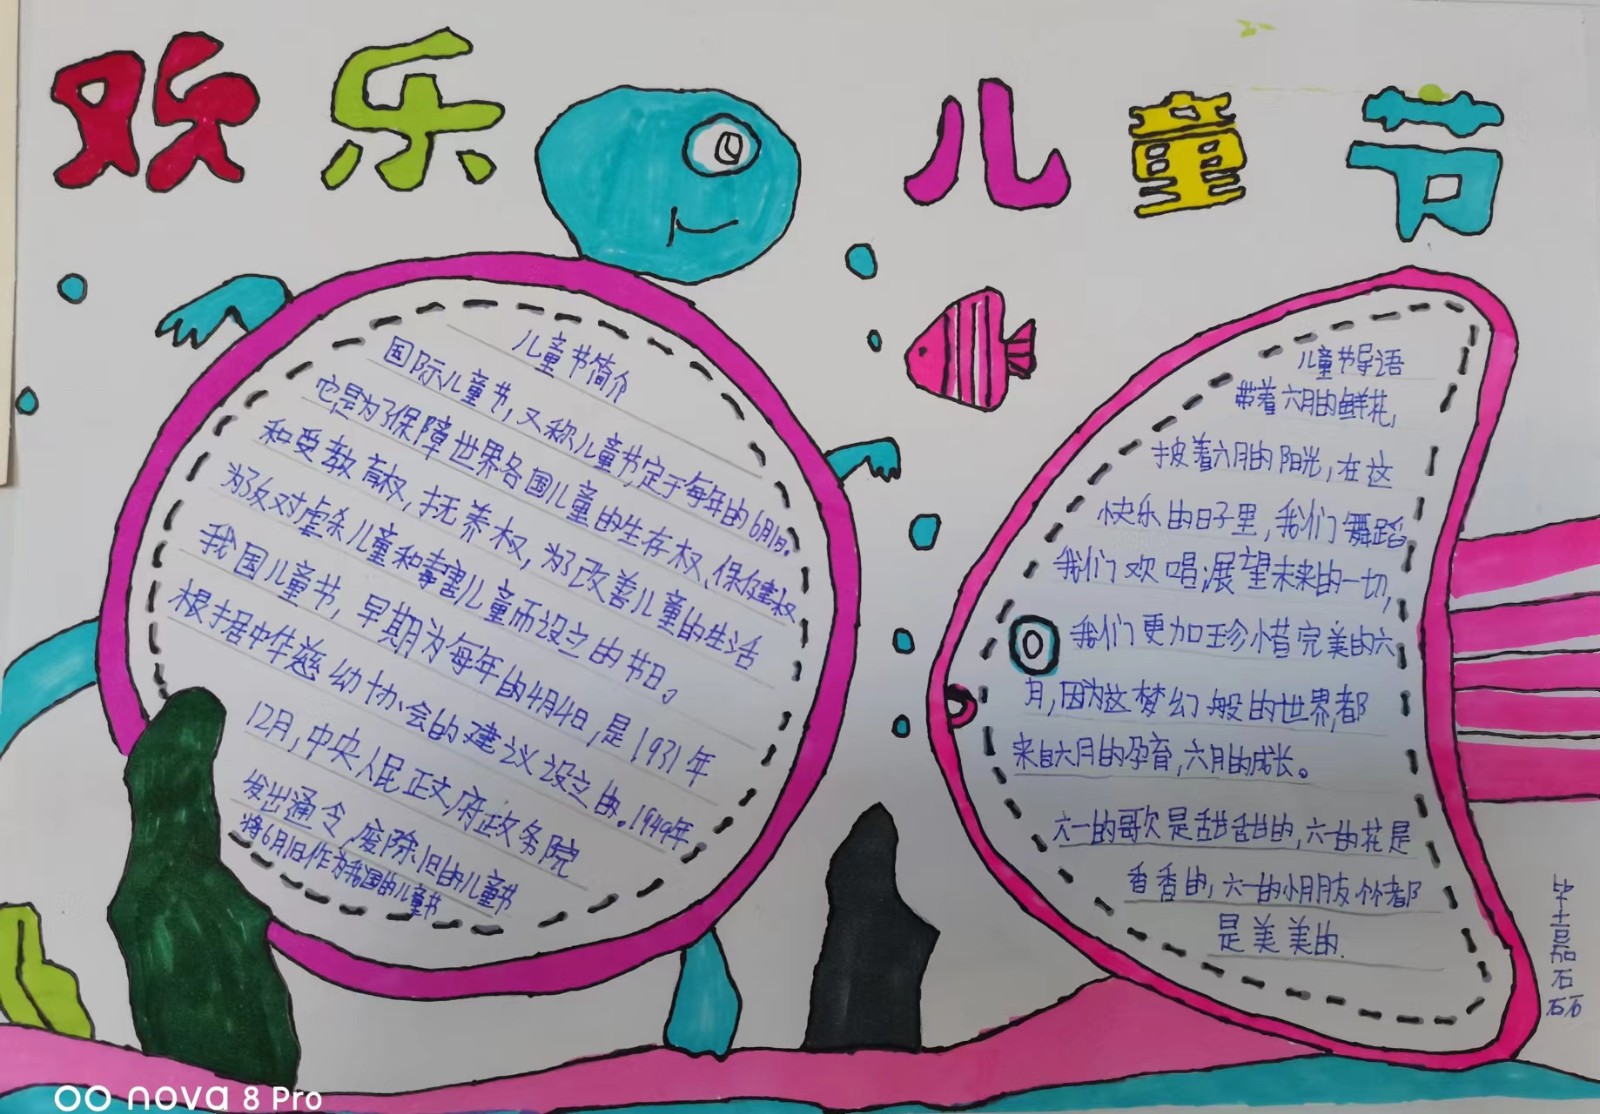 欢乐儿童节
儿童节简介
国际儿童节,又称儿童节,定于每年的6月1日。
它是为了保障世界各国儿童的生存权、保健权
和受教育权,抚养权,为了改善儿童的生活
为了反对虐杀儿童和毒害儿童而设立的节日。
我国儿童节,早期为每年的4月4日,是1931年
根据中华慈幼协会的建议设立的。1949年
12月,中央人民正文府政务院
发出通令废除旧的儿童节
将6月1日作为我国的儿童节
儿童节导语
带着六月的鲜花,
披着六月的阳光,在这
快乐的日子里,我们舞蹈
我们欢唱,展望未来的一切,
我们更加珍惜完美的六
月,因为这梦幻般的世界,都
来自六月的孕育,六月的成长。
六一的歌是甜甜的,六一的花是
香香的,六一的小朋友个个都
是美美的.
毕嘉石磊
nova 8 Pro